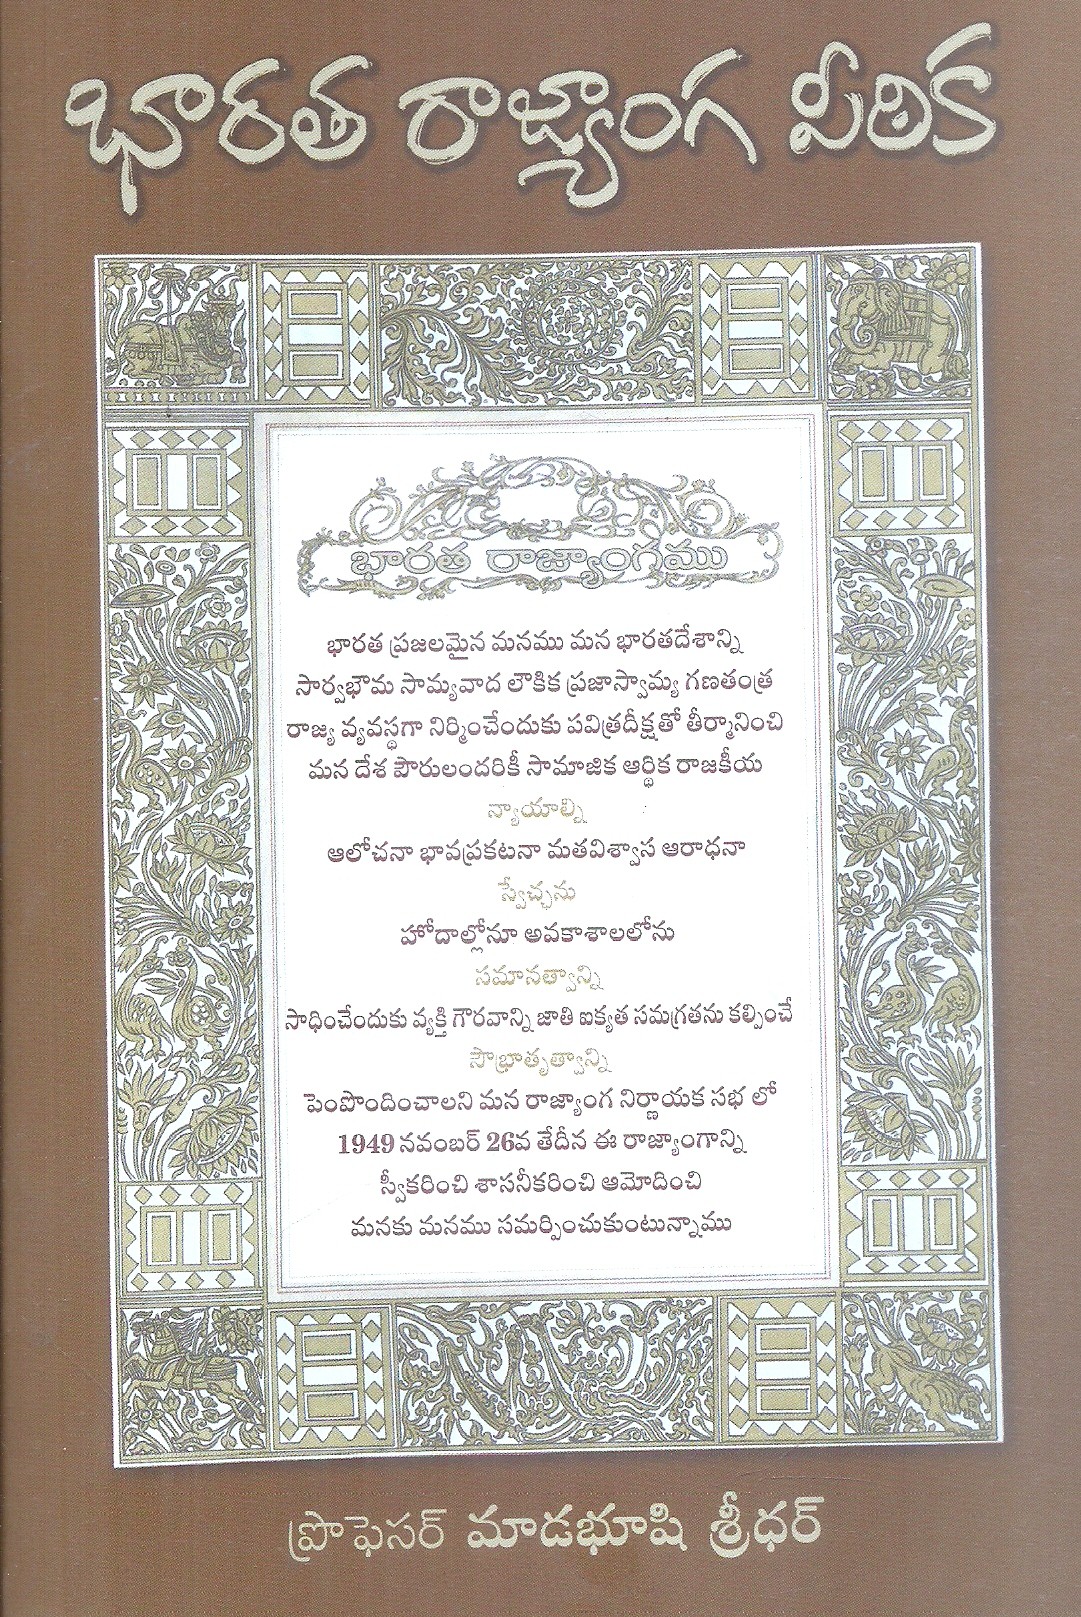 భారత రాజ్యాంగ పీఠిక
భారత రాజ్యాంగము
భారత ప్రజలమైన మనము మన భారతదేశాన్ని
సార్వభౌమ సామ్యవాద లౌకిక ప్రజాస్వామ్య గణతంత్ర
రాజ్య వ్యవస్థగా నిర్మించేందుకు పవిత్రదీక్షతో తీర్మానించి
మన దేశ పౌరులందరికీ సామాజిక ఆర్థిక రాజకీయ
న్యాయాల్ని
ఆలోచనా భావప్రకటనా మతవిశ్వాస ఆరాధనా
స్వేచ్ఛను
హోదాల్లోనూ అవకాశాలలోను
సమానత్వాన్ని
సాధించేందుకు వ్యక్తి గౌరవాన్ని జాతి ఐక్యత సమగ్రతను కల్పించే
సౌభ్రాతృత్వాన్ని
పెంపొందించాలని మన రాజ్యాంగ నిర్ణాయక సభ లో
1949 నవంబర్ 26వ తేదీన ఈ రాజ్యాంగాన్ని
స్వీకరించి శాసనీకరించి ఆమోదించి
మనకు మనము సమర్పించుకుంటున్నాము
ప్రొఫెసర్ మాడభూషి శ్రీధర్